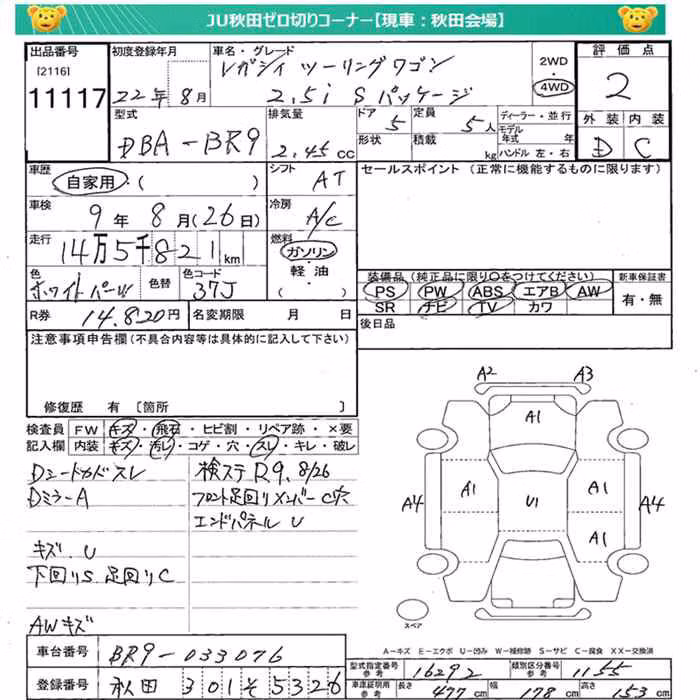 JU秋田ゼロ切りコーナー【現車：秋田会場】
出品番号 初度登録年月 車名・グレード 評価点
[2116] レガシィ ツーリングワゴン 2WD
11117 22年8月 2.5i Sパッケージ 4WD 2
型式 排気量 ドア 定員 ディーラー・並行 外装 内装
DBA-BR9 2.45cc 5 5人 モデル年式 年 D C
形状 積載 kg ハンドル 左・右
車歴 シフト セールスポイント（正常に機能するものに限ります）
自家用・( ) AT
車検 冷房
9年8月(26日) A/C
走行 燃料
14万5千821km ガソリン・軽油
( )
色 色替 色コード 装備品（純正品に限り○をつけてください） 新車保証書
ホワイトパール 37J PS PW ABS エアB AW 有・無
SR ナビ TV カワ
R券 14,820円 名変期限 月 日 後日品
注意事項申告欄（不具合内容等は具体的に記入して下さい）
修復歴 有 〔箇所 〕
検査員 FW キズ・飛石・ヒビ割・リペア跡・×要
記入欄 内装 キズ・汚レ・コゲ・穴・スレ・キレ・破レ
Dシートカド スレ 検ステ R9.8/26
Dミラー A フロント足回りメンバー C穴
エンドパネル U
キズ.U
下回りS 足回りC
AWキズ
A2 A3
A1
A4 A1 U1 A1 A4
A1
スペア
A-キズ E-エクボ U-凹み W-補修跡 S-サビ C-腐食 XX-交換済
車台番号 BR9-033076 型式指定番号 参考 16292 類別区分番号 参考 1155
登録番号 秋田 301 そ 5326 車庫証明用 参考 長さ 477cm 幅 178cm 高さ 153cm